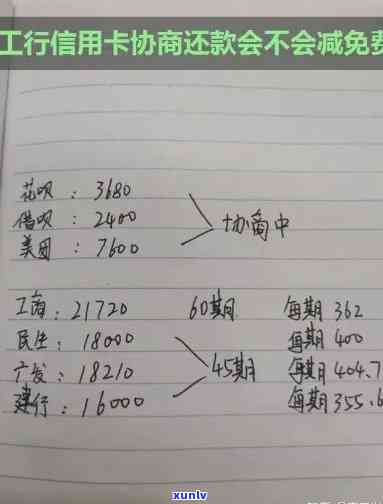 工行信用卡协商还款会不会减免费
花呗：3680
借呗：2400 协商中
美团：7600
工商：21720 60期 每期362
民生：18000 每期400
广发：18210 45期 每期404.7
建行：16000 每期355.6
xunlv